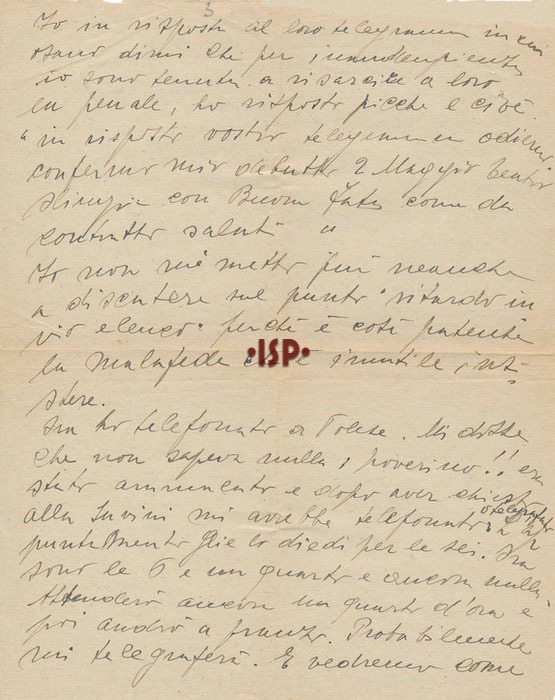 3
Io in risposta al loro telegramma in cui
osano dirmi che per inadempienza
io sono tenuta a risarcire a loro
la penale, ho risposto picche e cioè
"in risposta vostro telegramma odierno
confermo mio debutto 2 Maggio Teatro
Olimpia con Buona Fata come da
contratto saluti"
Io non mi metto più neanche
a discutere sul punto "ritardo in
vio elenco" perchè è così patente
la malafede che è inutile insi
stere.
·ISP·
Ora ho telefonato a Tolese. Mi disse
che non sapeva nulla, poverino!! era
stato ammalato e dopo aver chiesto
alla Suvini mi avrebbe telefonato
o telegrafato
puntamento glie lo diedi per le sei. Ora
sono le 6 e un quarto e ancora nulla.
Attenderò ancora un quarto d'ora e
poi andrò a pranzo. Probabilmente
mi telegraferà. E vedremo come